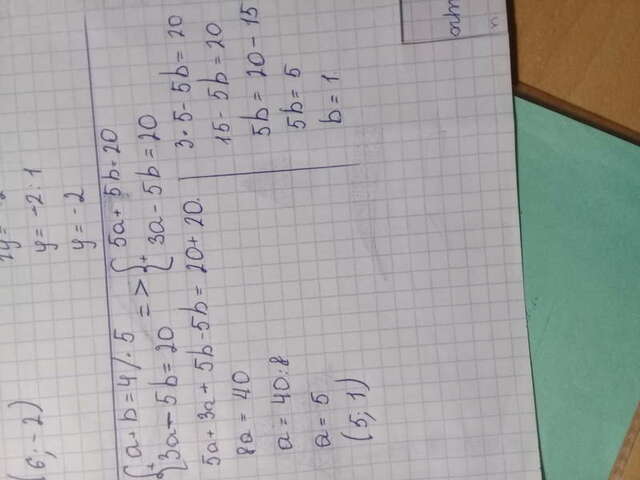 (6; -2)
2y = -2
y = -2:1
y = -2
{ a + b = 4 /· 5 => { 5a + 5b = 20
+ 3a - 5b = 20 + 3a - 5b = 20
5a + 3a + 5b - 5b = 20 + 20.
8a = 40
a = 40:8
a = 5
(5; 1)
3·5 - 5b = 20
15 - 5b = 20
5b = 20 - 15
5b = 5
b = 1